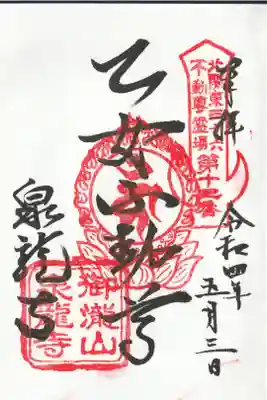 奉拝
令和四年
五月三日
北関東三十六
不動尊霊場
第十二番
乙女不動尊
御瀧山
泉龍寺
泉龍寺